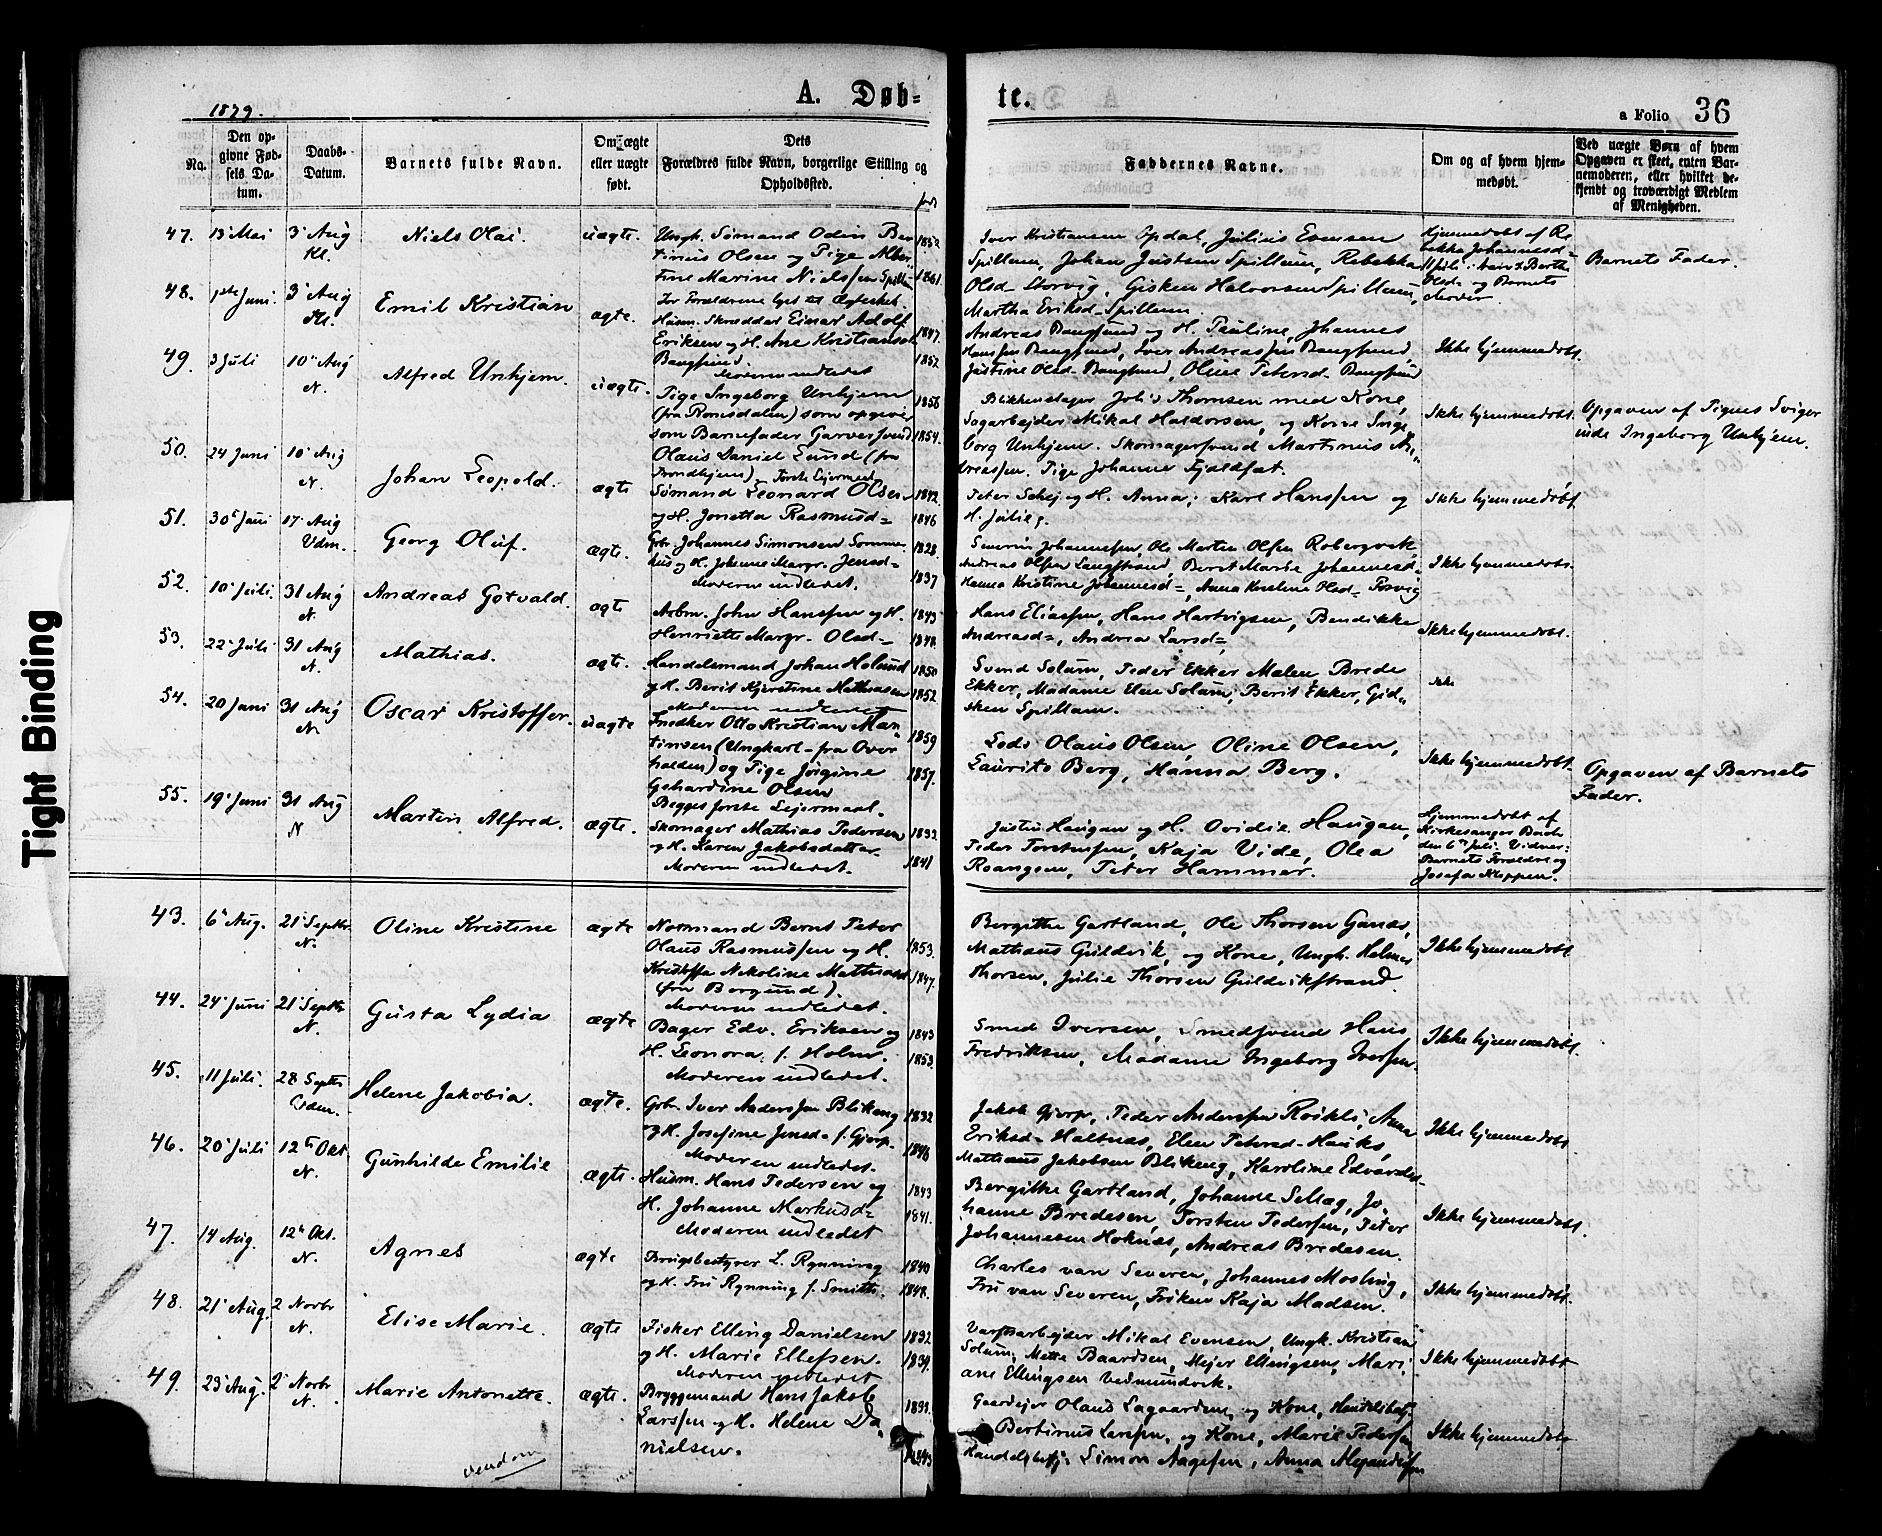 1879.
A. Døb-
te.
a Folio 36
No.
Den op-
givne Fød-
sels Da-
tum.
Daabs-
Datum.
Barnets fulde Navn.
Om ægte
eller uægte
født.
Dets
Forældres fulde Navn, borgerlige Stilling og
Opholdssted.
Faddernes Navne.
Om og af hvem hjem-
medøbt.
Ved uægte Børn af hvem
Opgaven er skeet, enten Bar-
nemoderen, eller hvilket be-
kjendt og troværdigt Medlem
af Menigheden.
47. 13 Mai 3 Aug Kl. Niels Olai. uægte.
Ungk. Sømand Odin Ber
tinus Olsen og Pige Alber
tine Marine Nielssen Spillum
1861.
Iver Kristiansen Opdal, Julius Evensen
Spillum, Johan Justsen Spillum, Rebekka
Olsd- Storvig, Gisken Halvorsen Spillum,
Martha Eriksd- Spillum
Hjemmedøbt af Re
bekka Johannesd
Olsd- og Barnets
Moder.
Barnets Fader.
48. 1ste Juni. 3 Aug Kl. Emil Kristian ægte.
Husm. Skrædder Einar Adolf
Eriksen og H. Ane Kristiansd
Bangsund.
Moderen indledet
1847.
1852.
Andreas Bangsund og H. Pauline, Johannes
Hanssen Bangsund, Iver Andreassen Bangsund,
Justine Olsd- Bangsund, Oline Petersd- Bangsund
Ikke hjemmedøbt.
49. 3 Juli 10 Aug N. Alfred Unhjem. uægte.
Pige Ingeborg Unhjem
(fra Romsdalen) som opgiver
som Barnefader Garversvend
Olaus Daniel Lund (fra
Trondhjem). Første Leiermaal
1856
1854.
Blikkenslager Johs Thomsen med Kone,
Sagarbejder Mikal Haldorsen, og Kone Inge
borg Unhjem. Skomagersvend Martinus An
dreassen. Pige Johanne Fjeldsæt.
Ikke hjemmedøbt.
Opgaven af Pigens Sviger
inde Ingeborg Unhjem.
50. 24 Juni 10 Aug N. Johan Leopold. ægte
Sømand Leonard Olsen
og H. Jonetta Rasmusd-
1842.
1846
Peter Schej og H. Anna; Karl Hanssen og
H. Julie.
Ikke hjemmedøbt
51. 30 Juni 17 Aug Vdm. Georg Oluf. ægte.
Gbr. Johannes Simonsen Somme
hus og H. Johanne Margr. Jensd-
Moderen indledet.
1828.
1837
Severin Johannessen, Ole Martin Olsen
Andreas Olsen Langstrand, Berit Marie Johannesd-
Hanna Kristine Johannesd-, Anna Karoline Olsd-
Ikke hjemmedøbt.
52. 10 Juli. 31 Aug N. Andreas Gotvald. ægte
Arbm. John Hanssen og H.
Henriette Margr. Olsd-
1843
1848.
Hans Eliassen, Hans Hartvigsen, Bendikke
Andreasd-, Andrea Larsd-,
Ikke hjemmedøbt.
53. 22 Juli 31 Aug N. Mathias. ægte.
Handelsmand Johan Holund
og H. Berit Kjerstine Mathiasen
Moderen indledet
1850
1852.
Svend Solum, Peder Ekker Malen Brede
Ekker, Madame Elen Solum, Berit Ekker, Gid
sken Spillum.
Ikke
54. 20 Juni 31 Aug N. Oscar Kristoffer. uægte
Snedker Otto Kristian Mar
tinsen (Ungkarl fra Over
halden) og Pige Jørgine
Gehardine Olsen
Begges første Leiermaal.
1859
1857.
Lods Olaus Olsen, Oline Olsen,
Laurits Berg, Hanna Berg.
Ikke hjemmedøbt.
Opgaven af Barnets
Fader.
55. 19 Juni 31 Aug N Martin Alfred. ægte.
Skomager Mathias Pedersen
og H. Karen Jakobsdatter
Moderen indledet.
1832
1841
Justin Haugan og H. Ovidie Haugan,
Peder Torstensen, Kaja Vide, Olea
Roangsen, Peter Hammer.
Hjemmedøbt af
Kirkesanger
den 6te Juli. Vidner:
Barnets Forældre og
Josefa Kleppen.
43. 6 Aug. 21 Septbr N. Oline Kristine ægte
Notmand Bernt Peter
Olaus Rasmussen og H.
Kristoffa Nekoline Mathiasd
(fra Borgund).
Moderen indledet.
1853.
1847.
Bergithe Gartland, Ole Thorsen Ganes,
Mathæus Guldvik, og Kone, Ungk. Helmer
Thorsen, Julie Thorsen Guldvikstrand.
Ikke hjemmedøbt
44. 24 Juni 21 Septbr N. Gusta Lydia ægte
Bager Edv. Eriksen og
H. Leonora f. Holm.
Moderen indledet.
1843
1853.
Smed Iversen, Smedsvend Hans
Fredriksen, Madame Ingeborg Iversen.
Ikke hjemmedøbt.
45. 11 Juli. 28 Septbr Vdm. Helene Jakobia. ægte.
Gbr. Iver Anderssen Blikeng
og H. Josefine Jensd- f. Gjørp-
Moderen indledet.
1832
1843
Jakob Gjørp, Peder Anderssen Rosikli, Anna
Eriksd- Haltnæs, Elen Petersd- Hauk,
Mathæus Jakobsen Blikeng, Karoline Edvardsd-
Ikke hjemmedøbt
46. 20 Juli 12te Okt. N. Gunhilde Emilie ægte.
Husm. Hans Pedersen og
H. Johanne Markusd-
Moderen indledet
1843
1841.
Bergithe Gartland, Johanne Selleg, Jo
hanne Bredesen, Torsten Pedersen, Peter
Johannesen Høknæs, Andreas Bredesen.
Ikke hjemmedøbt.
47. 14 Aug. 12te Okt. N. Agnes ægte
Brugsbestyrer L. Rynning
og H. Fru Rynning f. Smith.
1840
1848.
Charles van Severen, Johannes Mosling,
Fru van Severen, Frøken Kaja Madsen.
Ikke hjemmedøbt.
48. 21 Aug. 2 Novbr N. Elise Marie. ægte
Fisker Elling Danielsen
og H. Marie Ellefsen.
Moderen indledet
1832
1839.
Varfsarbejder Mikal Evensen, Ungk. Kristian
Solum, Mette Baardsen, Mejer Ellingsen, Mari
ane Ellingsen Vedmundvik.
Ikke hjemmedøbt
49. 23 Aug. 2 Novbr N. Marie Antonette. ægte.
Bryggemand Hans Jakob
Larssen og H. Helene Da
nielsen.
1843
Gaardejer Olaus Lagaardem og Kone, Handelsbetj.
Bertinus Larssen, og Kone, Marie Pedersen
Handelsbetj. Simon Aagesen, Anna
Ikke hjemmedøbt
vendom
Tight Binding